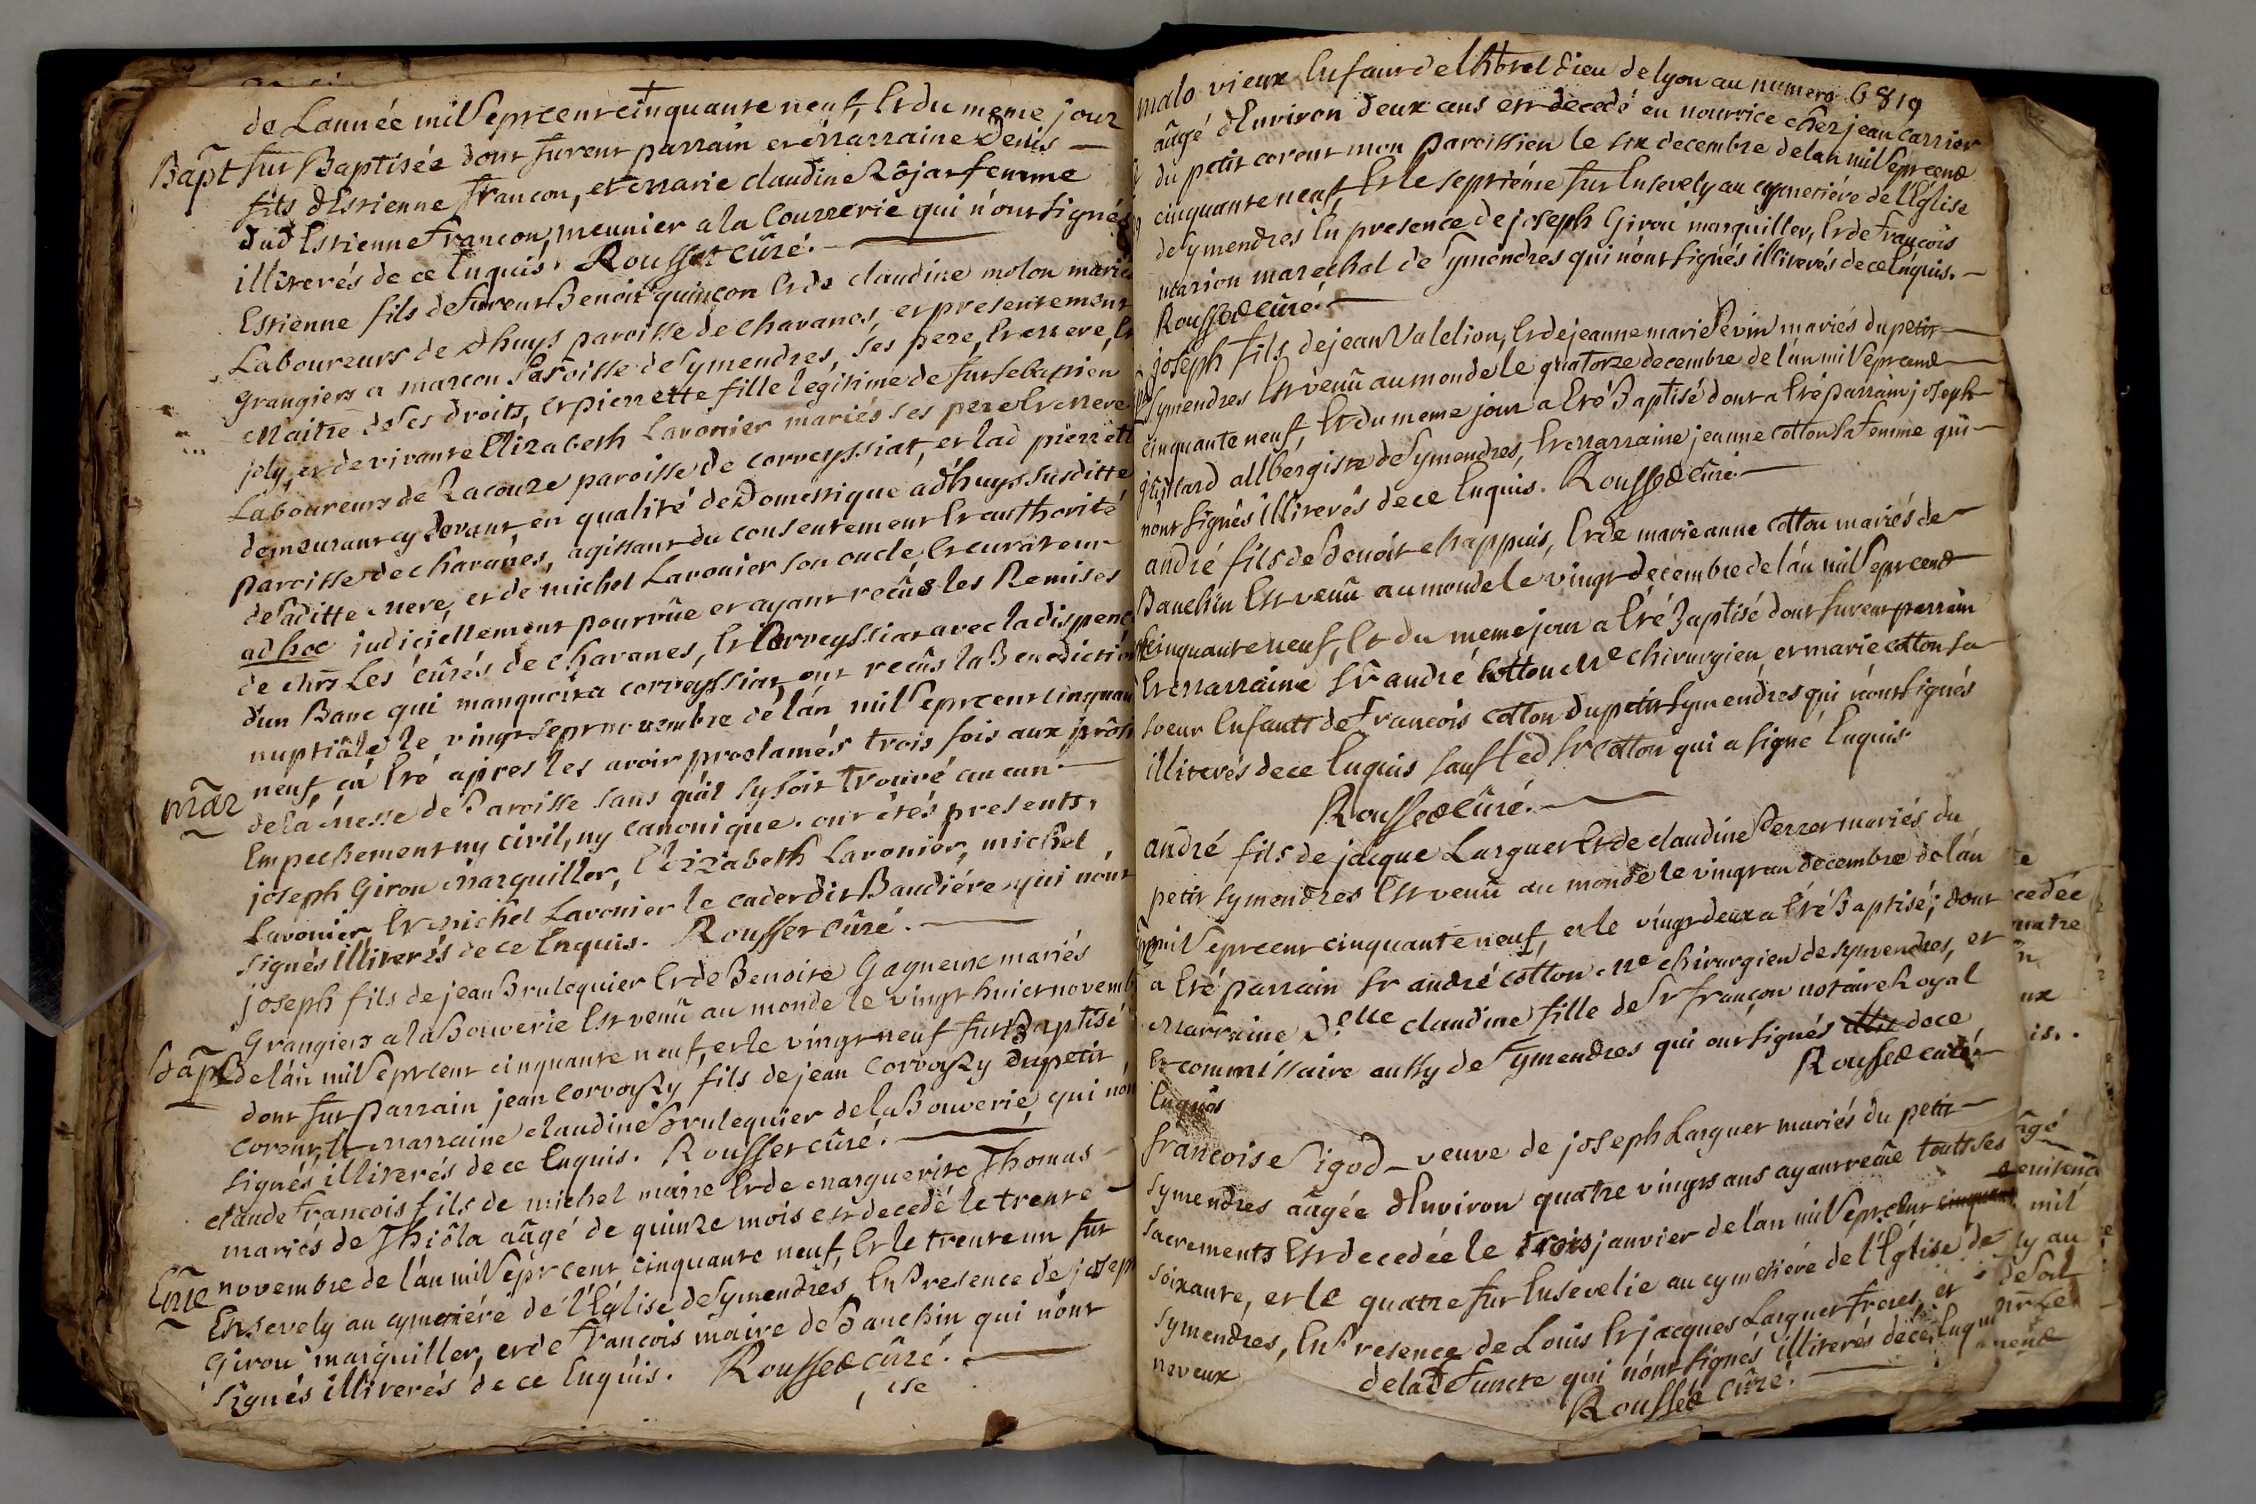 de Lannée mil Sept cent cinquante neuf, Et du meme jour
Bapt fut Baptisée dont furent parrain et Marraine Denis
fils dEstienne françon, et Marie claudine Rojat femme
dud Estienne françon, meunier a la Courrerie qui n'ont signés
illiterés de ce Enquis. Rousset Cûré.
Estienne fils de feu Benoit quinçon Et de claudine molon mariés
Laboureurs de dhuys paroisse de Chavanes, et presentement
Grangiers a marcon Paroisse de Symendres, ses pere, Et mere,
Maitre de ses droits, et pierrette fille legitime de fut sebastien
joly, et de vivante Elizabeth Lavonier mariés ses pere Et Mere
Laboureurs de Racouze paroisse de corveyssiat, et lad pierrette
demeurant cy devant en qualité de Domestique a dhuys susditte
Paroisse de chavanes, agissant du consentement Et authorité
de Saditte Mere, et de michel Lavonier son oncle Et curateur
ad hoc judiciellement pourvûe et ayant reçûs les Remises
de Mrs Les cûrés de chavanes, Et Corveyssiat avec la dispence
d'un Banc qui manquoit a corveyssiat ont reçûs la Benediction
nuptiâle le vingt sept novembre de lán mil Sept cent cinquante
mar neuf, ca Eté apres les avoir proclamés trois fois aux prônes
de lá Messe de Paroisse sans quil sy soit trouvé aucun
Empechement ny civil, ny canonique. ont étés presents,
joseph Girou Marguiller, Elizabeth Lavonier, michel
Lavonier Et Michel Lavonier le cadet dit Baudiére qui nont
signés illiterés de ce Enquis. Rousset Cûré.
joseph fils de jean Brulequier Et de Benoite Gagneux mariés
Grangiers a la Bouverie Est venû au monde le vingt huict novembre
Bapt de lán mil Sept cent cinquante neuf, et le vingt neuf fut Baptisé
dont fut Parrain jean corvoyzy fils de jean corvoyzy du petit
corent, Et Marraine claudine Brulequier de la Bouverie, qui n'ont
signés illiterés de ce Enquis. Rousset cûré.
claude François fils de michel maire Et de Marguerite Thomas
mariés de Thiôla aâgé de quinze mois est decedé le trente
novembre de l'an mil Sept cent cinquante neuf, Et le trente un fut
Ensevely au cymetiére de l'Église de Symendres, En Presence de joseph
Girou marguiller, et de François maire de Banchin qui nont
signés illiterés de ce Enquis. Rousset Cûré.
malo vieux Enfant de lhôtel dieu de lyon au numero 6819
aâgé dEnviron deux ans est decedé en nourrice chez jean carrier
du petit corent mon paroissien le six decembre de lan mil Sept cent
cinquante neuf, Et le septiéme fut Ensevely au cymetiére de lEglise
de Symendres En presence de joseph Girou marguiller, Et de François
marion marechal de Symendres qui n'ont signés illiterés de ce Enquis.
Rousset Cûré.
joseph fils de jean Valelion, Et de jeanne marie Sevin mariés du petit
Symendres Est venû au monde le quatorze decembre de lán mil Sept cent
cinquante neuf, Et du meme jour a Eté Baptisé dont a Eté parrain joseph
juillard allbergiste de Symendres, Et Marraine jeanne cotton sa Femme qui
nont signés illiterés de ce Enquis. Rousset Cûré.
andré fils de Benoit chappuis, Et de marie anne cotton mariés de
Banchin Est venû au monde le vingt decembre de lán mil Sept cent
cinquante neuf, Et du meme jour a Eté Baptisé dont furent parrain
Et Marraine Sr andré Cotton Me chirurgien et marie cotton sa
soeur Enfants de François cotton du petit Symendres qui n'ont signés
illiterés de ce Enquis sauf led Sr Cotton qui a signé Enquis.
Rousset Cûré.
andré fils de jacque Larguet Et de claudine Perret mariés du
petit Symendres Est venû au monde le vingt un decembre de lán
mil Sept cent cinquante neuf, et le vingt deux a Eté Baptisé, dont
a Eté parrain Sr andré cotton Me chirurgien de symendres, et
Marraine Delle claudine fille de Sr françon notaire Royal
Et commissaire aussy de Symendres qui ont signés illit de ce
Enquis Rousset curé.
françoise Pigod veuve de joseph Larguet mariés du petit
Symendres aâgée dEnviron quatre vingts ans ayant reçûe touts ses
sacrements Est decedée le trois janvier de l'an mil Sept cent cinquante
soixante, et le quatre fut Ensevelie au cymetiére de l'Eglise de
Symendres, En Presence de Louis Et jacques Larguet freres, et
neveux de la Defuncte qui nont signés illiterés de ce Enquis
Rousset Cûré.